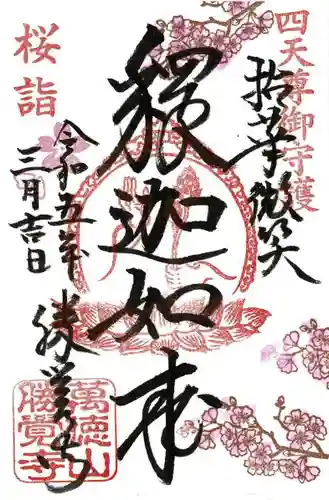 四天尊御守護
拈華微笑
釈迦如来
桜詣
令和五年
三月吉日
勝覚寺
萬徳山
勝覚寺